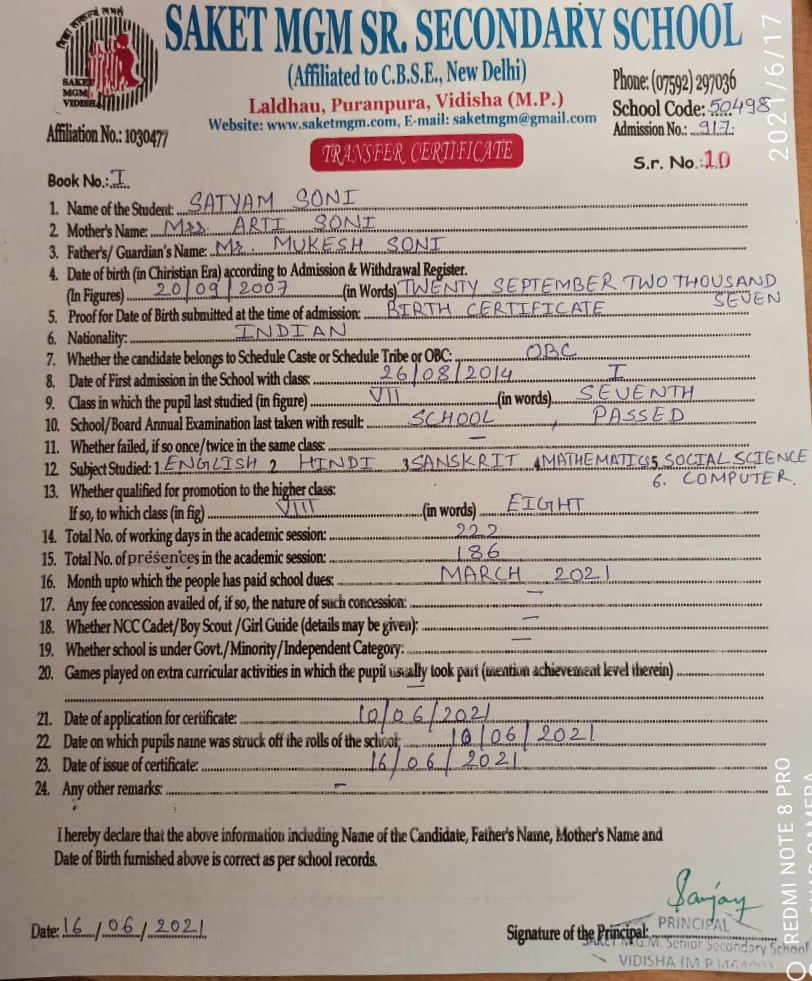 SAKET MGM SR. SECONDARY SCHOOL
(Affiliated to C.B.S.E., New Delhi)
Laldhau, Puranpura, Vidisha (M.P.)
Website: www.saketmgm.com, E-mail: saketmgm@gmail.com
SAKET
MGM
VIDISHA
Affiliation No.: 1030477
Phone: (07592) 297036
School Code: 50498
Admission No.: 917
TRANSFER CERTIFICATE
S.r. No.:10
Book No.: I
1. Name of the Student: SATYAM SONI
2. Mother's Name: Mrs ARTI SONI
3. Father's/ Guardian's Name: Mr. MUKESH SONI
4. Date of birth (in Christian Era) according to Admission & Withdrawal Register.
(In Figures) 20/09/2007 (in Words) TWENTY SEPTEMBER TWO THOUSAND
SEVEN
5. Proof for Date of Birth submitted at the time of admission: BIRTH CERTIFICATE
6. Nationality: INDIAN
7. Whether the candidate belongs to Schedule Caste or Schedule Tribe or OBC: OBC
8. Date of First admission in the School with class: 26/08/2014 I
9. Class in which the pupil last studied (in figure) VII (in words) SEVENTH
10. School/Board Annual Examination last taken with result: SCHOOL, PASSED
11. Whether failed, if so once/twice in the same class: —
12. Subject Studied: 1 ENGLISH 2 HINDI 3 SANSKRIT 4 MATHEMATICS 5. SOCIAL SCIENCE
6. COMPUTER.
13. Whether qualified for promotion to the higher class:
If so, to which class (in fig) VIII (in words) EIGHT
14. Total No. of working days in the academic session: 222
15. Total No. of présences in the academic session: 186
16. Month upto which the people has paid school dues: MARCH 2021
17. Any fee concession availed of, if so, the nature of such concession: —
18. Whether NCC Cadet/Boy Scout /Girl Guide (details may be given): —
19. Whether school is under Govt./Minority/Independent Category: —
20. Games played on extra curricular activities in which the pupil usually took part (mention achievement level therein)
—
21. Date of application for certificate: 10/06/2021
22. Date on which pupils name was struck off the rolls of the school; 10/06/2021
23. Date of issue of certificate: 16/06/2021
24. Any other remarks: -
I hereby declare that the above information including Name of the Candidate, Father's Name, Mother's Name and
Date of Birth furnished above is correct as per school records.
Date: 16/06/2021
Sanjay
Signature of the Principal: PRINCIPAL
M.G.M. Senior Secondary School
VIDISHA (M.P.)
2021/6/17
REDMI NOTE 8 PRO